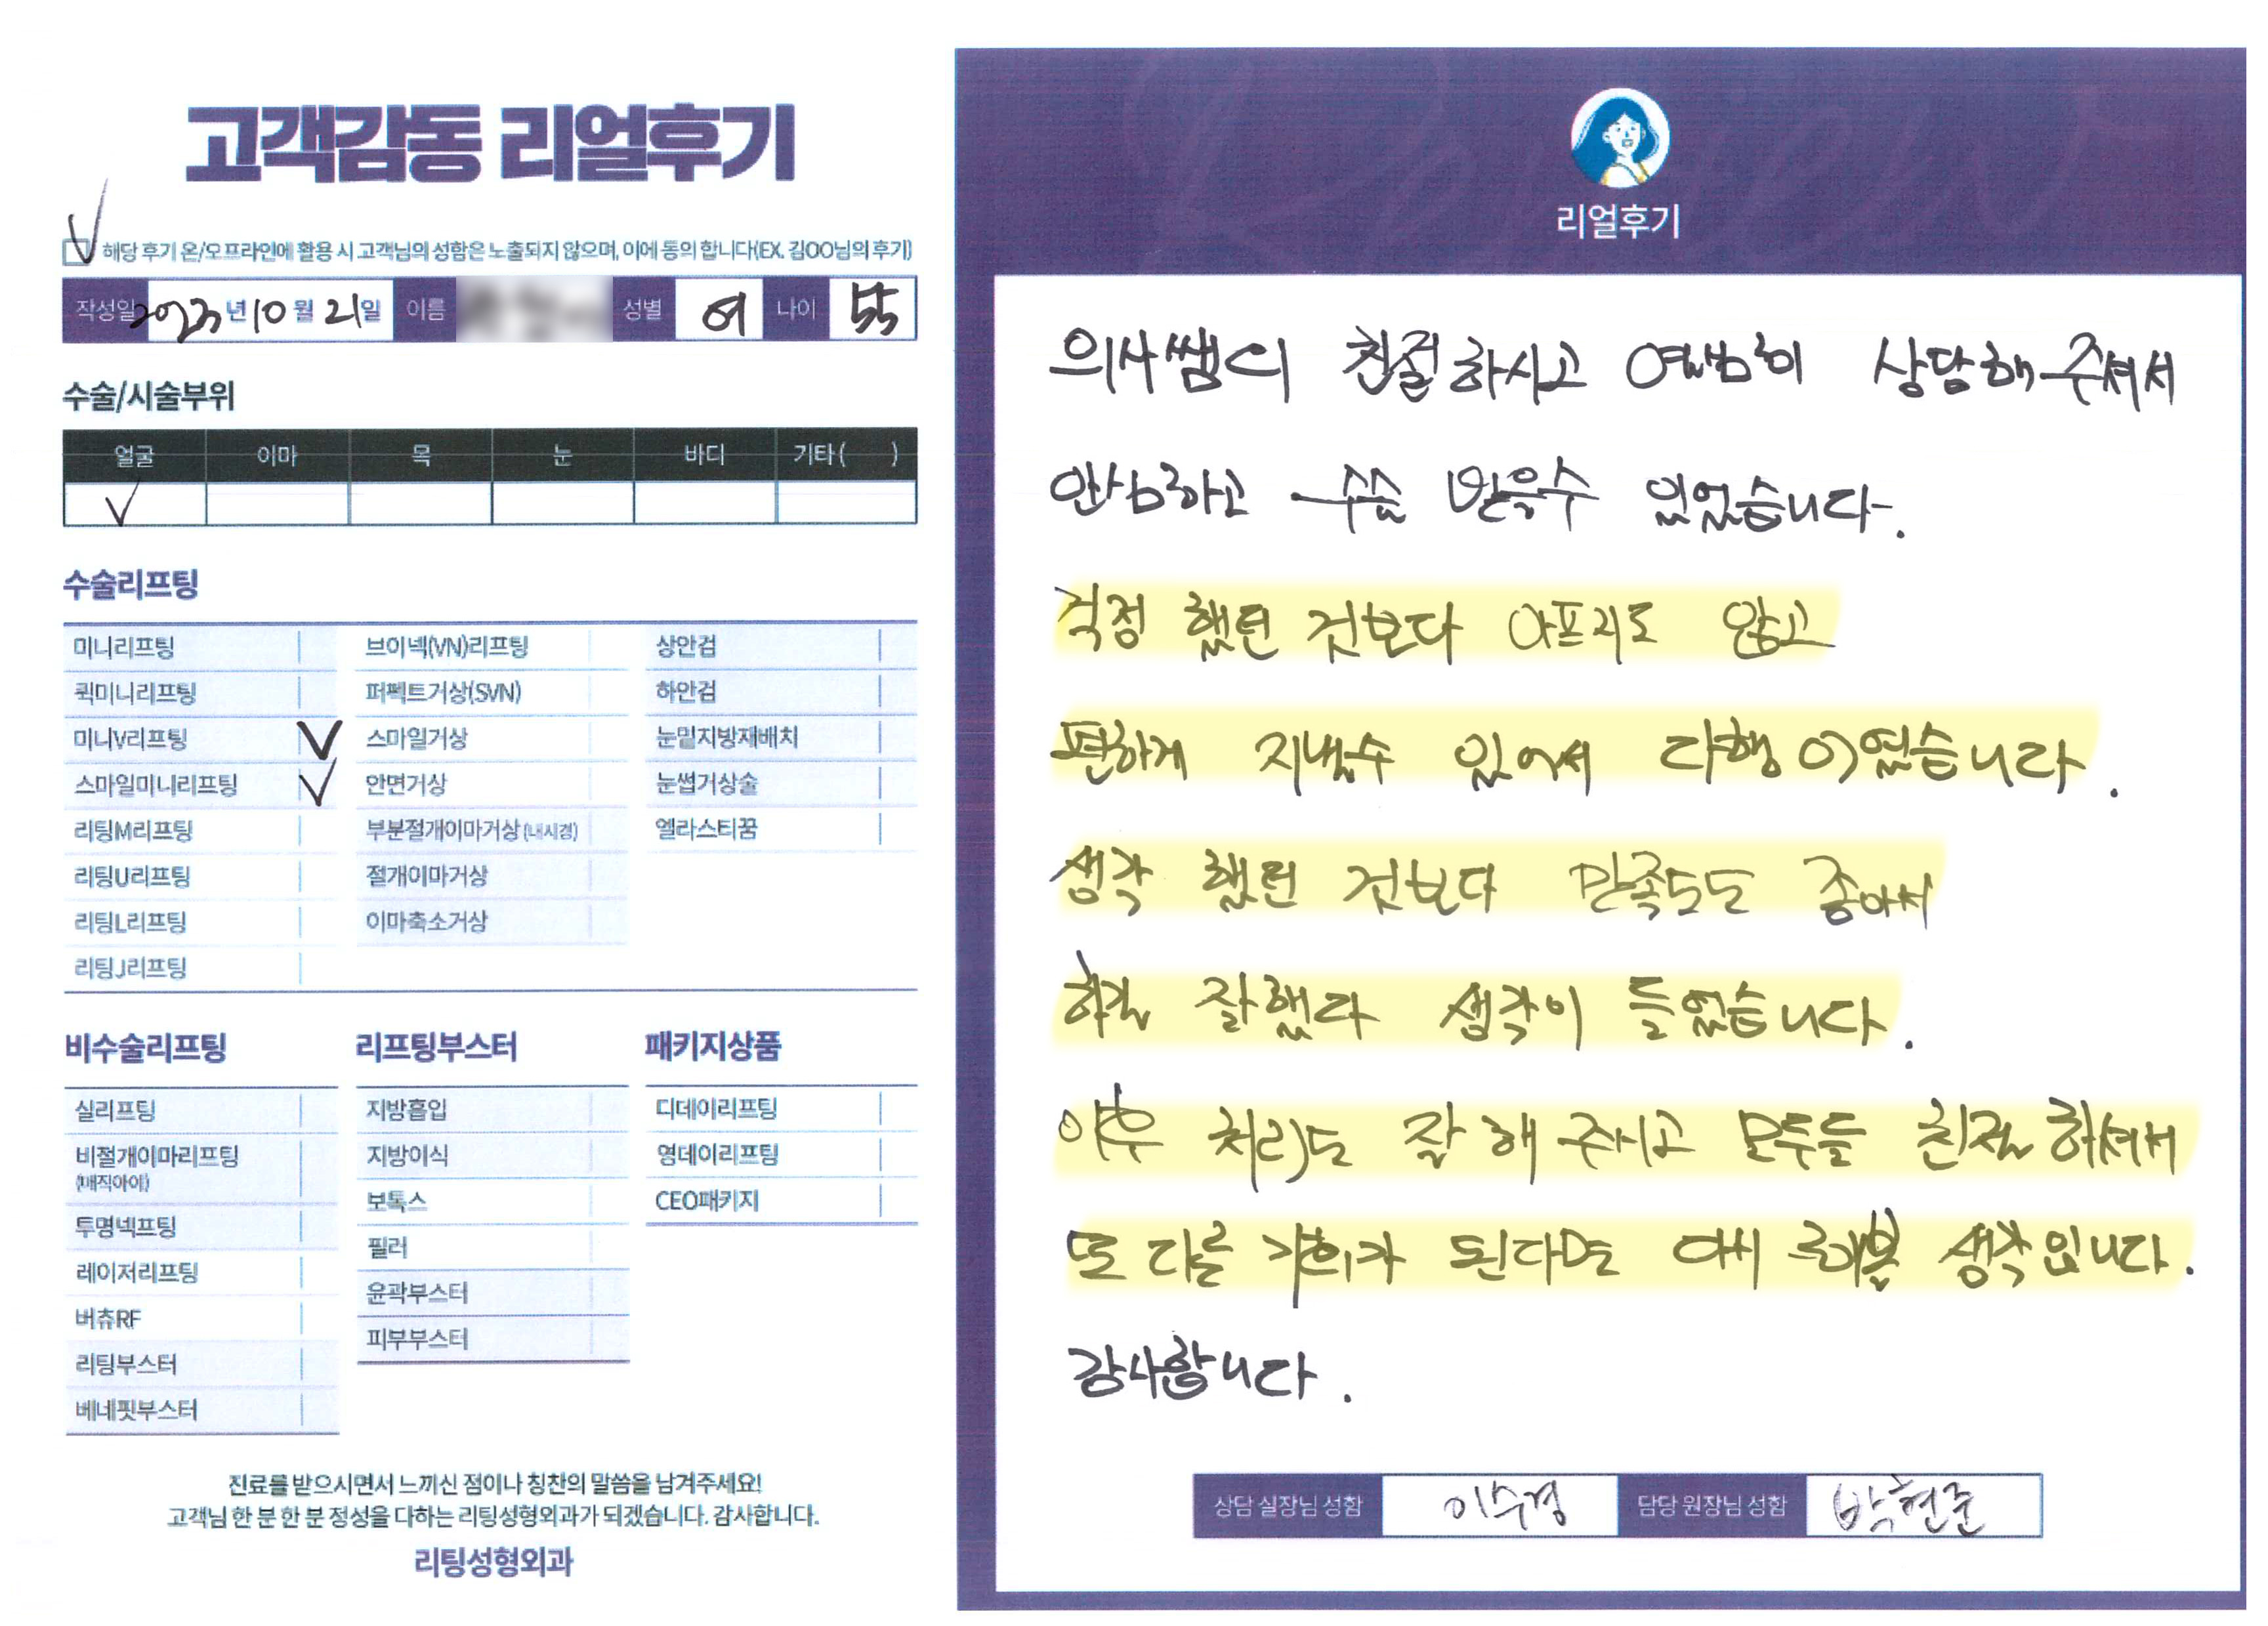 고객감동 리얼후기
해당 후기 온/오프라인에 활용 시 고객님의 성함은 노출되지 않으며, 이에 동의 합니다(EX. 김OO님의 후기)
작성일 2023년 10월 21일 이름 성별 여 나이 55
수술/시술부위
얼굴 이마 목 눈 바디 기타( )
수술리프팅
미니리프팅 브이넥(VN)리프팅 상안검
퀵미니리프팅 퍼펙트거상(SVN) 하안검
미니V리프팅 스마일거상 눈밑지방재배치
스마일미니리프팅 안면거상 눈썹거상술
리팅M리프팅 부분절개이마거상(내시경) 엘라스티꿈
리팅U리프팅 절개이마거상
리팅L리프팅 이마축소거상
리팅J리프팅
비수술리프팅 리프팅부스터 패키지상품
실리프팅 지방흡입 디데이리프팅
비절개이마리프팅 지방이식 영데이리프팅
(매직아이)
보톡스 CEO패키지
투명넥프팅 필러
레이저리프팅 윤곽부스터
버츄RF 피부부스터
리팅부스터
베네핏부스터
진료를 받으시면서 느끼신 점이나 칭찬의 말씀을 남겨주세요!
고객님 한 분 한 분 정성을 다하는 리팅성형외과가 되겠습니다. 감사합니다.
리팅성형외과
리얼후기
의사쌤이 친절하시고 열심히 상담해 주셔서
안심하고 수술 받을수 있었습니다.
걱정 했던 것보다 아프지도 않고
편하게 지낼수 있어서 다행이었습니다.
생각 했던 것보다 만족도도 좋아서
하길 잘했다 생각이 들었습니다.
이후 처리도 잘 해 주시고 모두들 친절하셔서
또 다른 기회가 된다면 다시 해볼 생각입니다.
감사합니다.
상담 실장님 성함 이수경 담당 원장님 성함 박현준